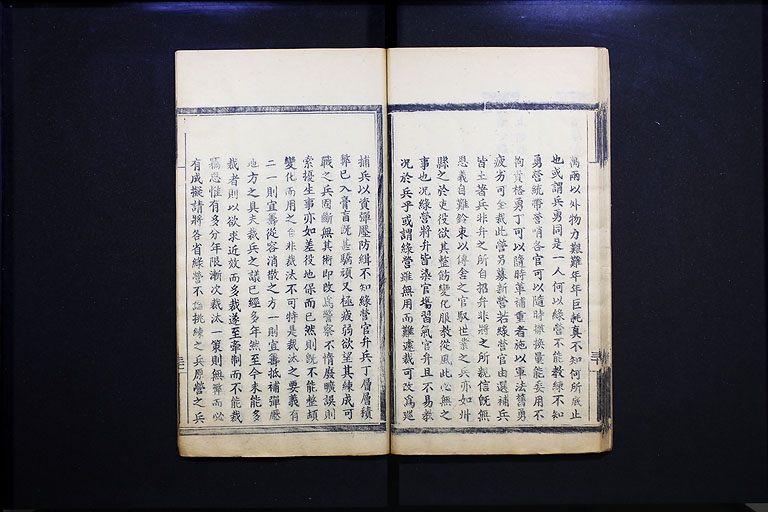 萬兩以外物力艱難年年巨耗真不知何所底止
也或謂兵勇同是一人何以綠營不能教練不知
勇營統帶營哨各官可以隨時撤換量能委用不
拘資格勇丁可以隨時革補重者施以軍法舊勇
疲劣可全裁此營另募新營若綠營官由選補兵
皆土著兵非弁之所自招弁非將之所親信既無
恩義自難鈐束以傳舍之官馭世業之兵亦如州
縣之於吏役欲其整飭變化服教從風此必無之
事也況綠營將弁皆染官場習氣官弁且不易教
況於兵乎或謂綠營雖無用而難遽裁可改為巡
捕兵以資彈壓防緝不知綠營官弁兵丁層層積
弊已入膏肓既甚驕頑又極疲弱欲望其練成可
戰之兵固斷無其術即改為警察不惰廢曠誤則
索擾生事亦如差役地保而已然則既不能整頓
變化而用之自非裁汰不可特是裁汰之要義有
二一則宜籌從容消散之方一則宜籌抵補彈壓
地方之具夫裁兵之議已經多年然至今未能多
裁者則以欲求近效而多裁遂至牽制而不能裁
竊思惟有多分年限漸次裁汰一策則無弊而必
有成擬請將各省綠營不論挑練之兵原營之兵